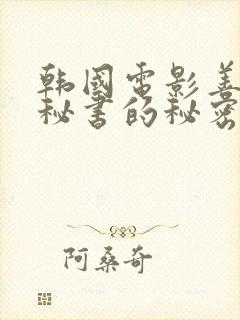 韩国电影善
秘书的秘密
阿桑奇